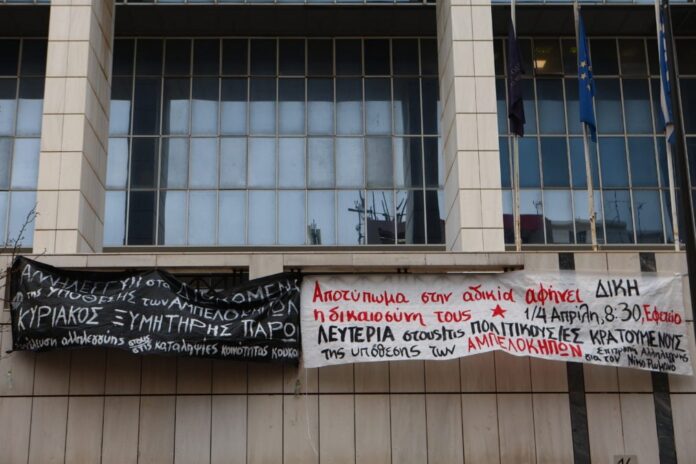 ΑΛΛΗΛΕΓΓΥΗ στα
της ΥΠΟΘΕΣΗΣ των ΑΜΠΕΛΟΚΗΠΩΝ
ΚΥΡΙΑΚΟΣ ΞΥΜΗΤΗΡΗΣ ΠΑΡΩ
αλληλεγγύης στους
στις καταλήψεις κοινότητας
Αποτύπωμα στην αδικία αφήνει
η δικαιοσύνη τους ★
ΔΙΚΗ
1/4 Απρίλη, 8:30, Εφετείο
ΛΕΥΤΕΡΙΑ στους/τις ΠΟΛΙΤΙΚΟΥΣ/ΕΣ ΚΡΑΤΟΥΜΕΝΟΥΣ
της υπόθεσης των ΑΜΠΕΛΟΚΗΠΩΝ
Επιτροπή Αλληλεγγύης
για τον Νίκο Ρωμανό